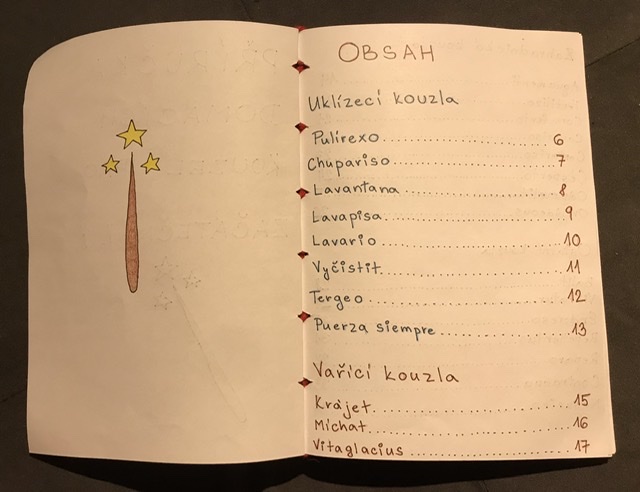 OBSAH
Uklízecí kouzla
Pulírexo 6
Chupariso 7
Lavantana 8
Lavapisa 9
Lavario 10
Vyčistit 11
Tergeo 12
Puerza siempre 13
Vařící kouzla
Krájet 15
Míchat 16
Vitaglacius 17